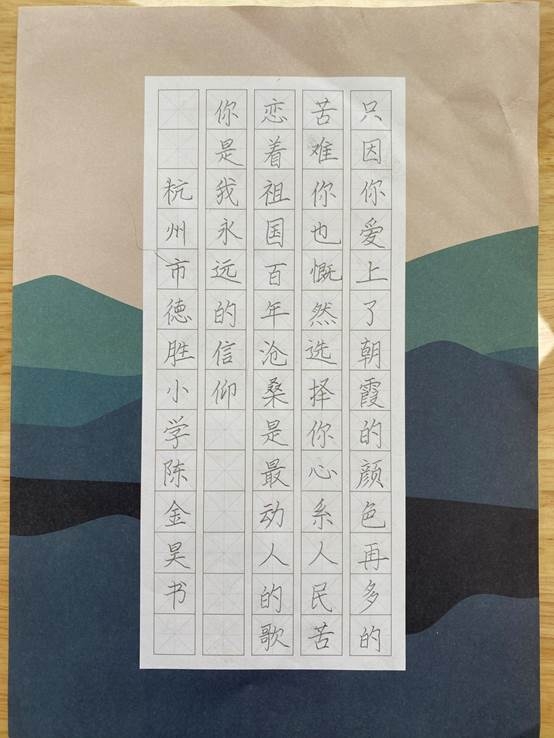 只因你爱上了朝霞的颜色再多的
苦难你也慨然选择你心系人民苦
恋着祖国百年沧桑是最动人的歌
你是我永远的信仰
杭州市德胜小学陈金昊书